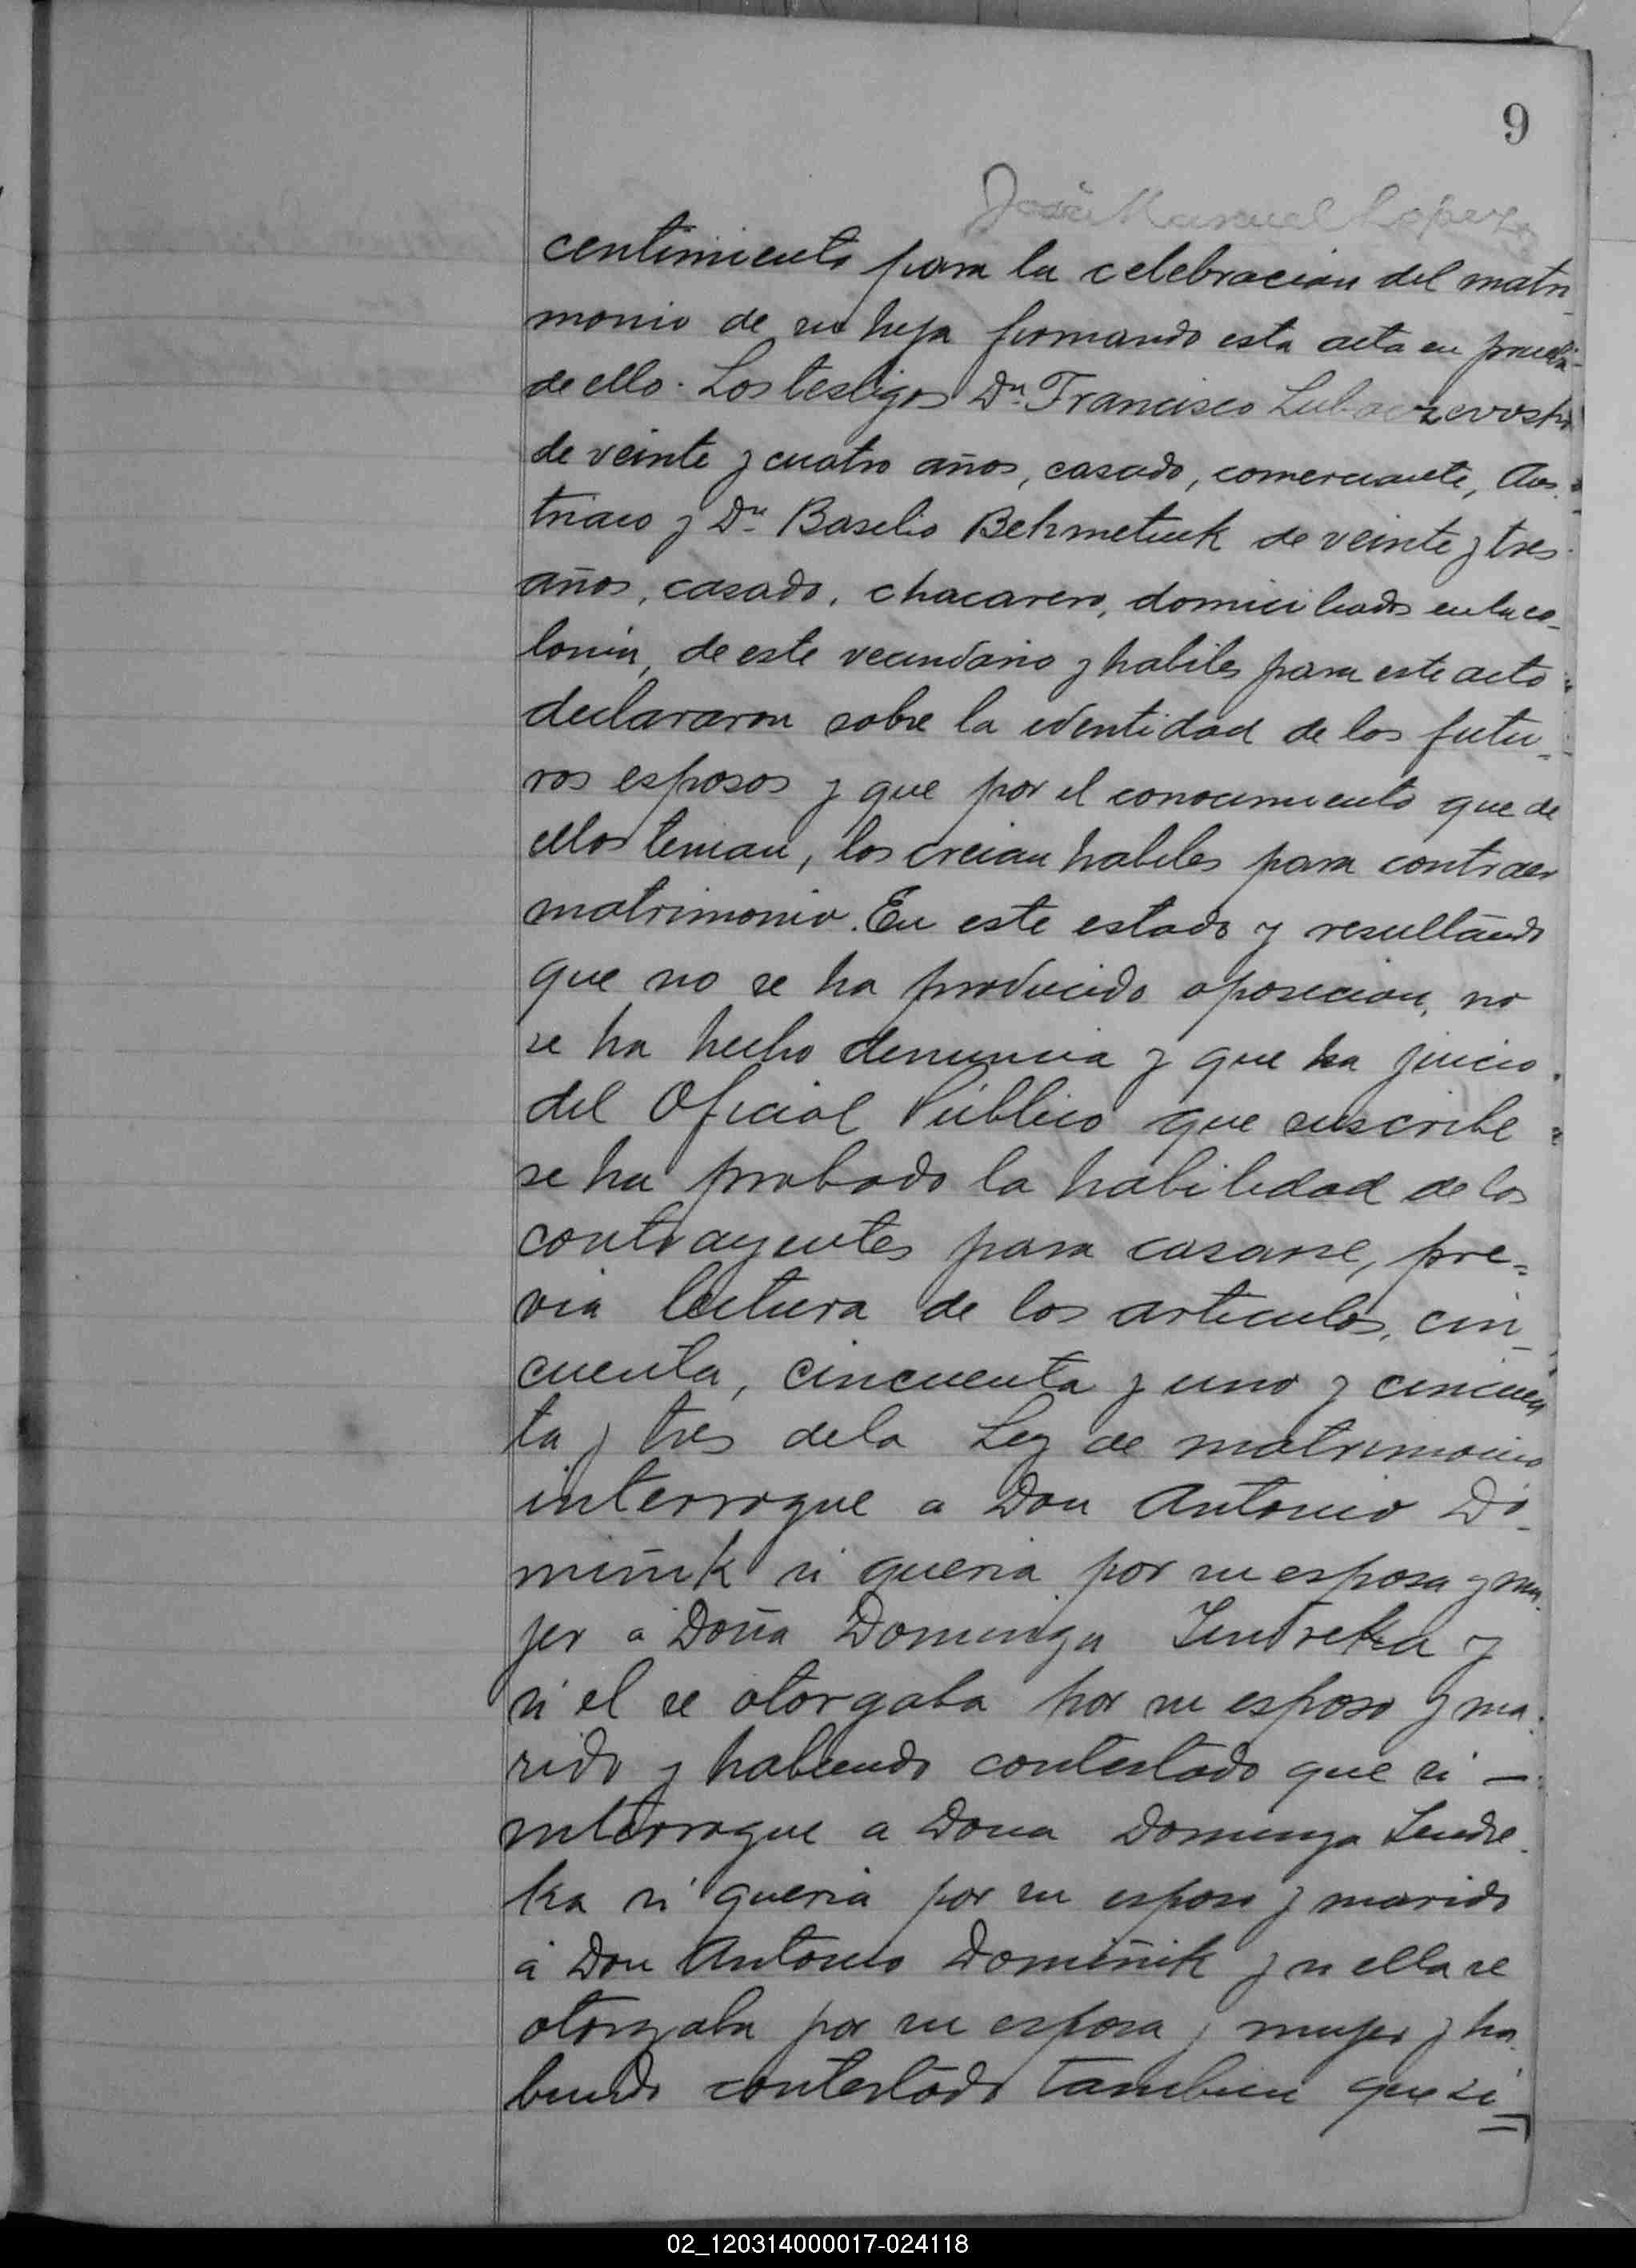 9
José Manuel Lopez
centimiento para la celebracion del matri_
monio de su hija firmando esta acta en prueba
de ello. Los testigos Dn. Francisco
de veinte y cuatro años, casado, comerciante, Aus_
triaco y Dn. Basilio Behmetiuk de veinte y tres
años, casado, chacarero, domiciliados en la co_
lonia, de este vecindario y habiles para este acto
declararon sobre la identidad de los futu_
ros esposos y que por el conocimiento que de
ellos tenian, los creian habiles para contraer
matrimonio. En este estado y resultando
que no se ha producido oposicion, no
se ha hecho denuncia y que ha juicio
del Oficial Público que suscribe
se ha probado la habilidad de los
contrayentes para casarse, pre=
via lectura de los articulos, cin_
cuenta, cincuenta y uno y cincuen
ta y tres de la Ley de matrimonio
interrogue a Don Antonio Do_
miñik si queria por su esposa y mu_
jer a Doña Dominga y
si el se otorgaba por su esposo y ma_
rido y habiendo contestado que si —
interrogue a Dona Dominga
ka si queria por su esposo y marido
á Don Antonio Domiñik y si ella se
otorgaba por su esposa y mujer y ha_
biendo contestado tambien que si_
02_120314000017-024118